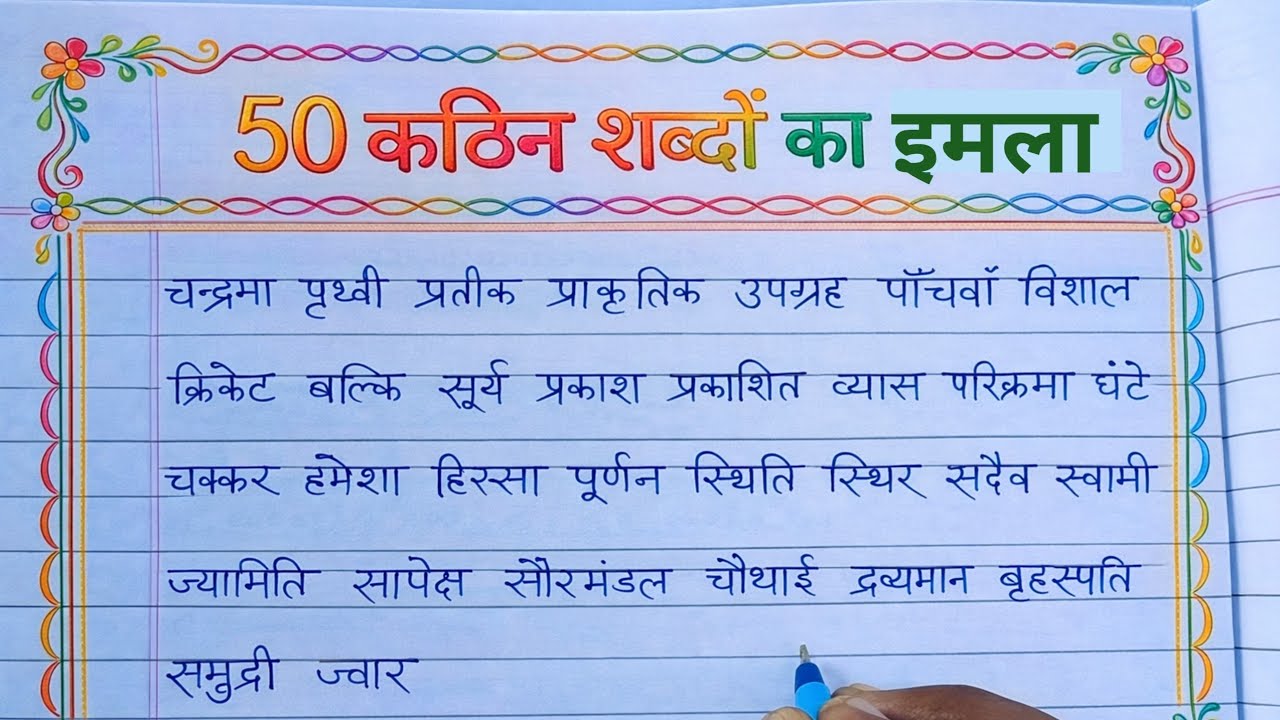 50 कठिन शब्दों का इमला
चन्द्रमा पृथ्वी प्रतीक प्राकृतिक उपग्रह पाँचवाँ विशाल
क्रिकेट बल्कि सूर्य प्रकाश प्रकाशित व्यास परिक्रमा घंटे
चक्कर हमेशा हिस्सा पूर्णन स्थिति स्थिर सदैव स्वामी
ज्यामिति सापेक्ष सौरमंडल चौथाई द्रव्यमान बृहस्पति
समुद्री ज्वार